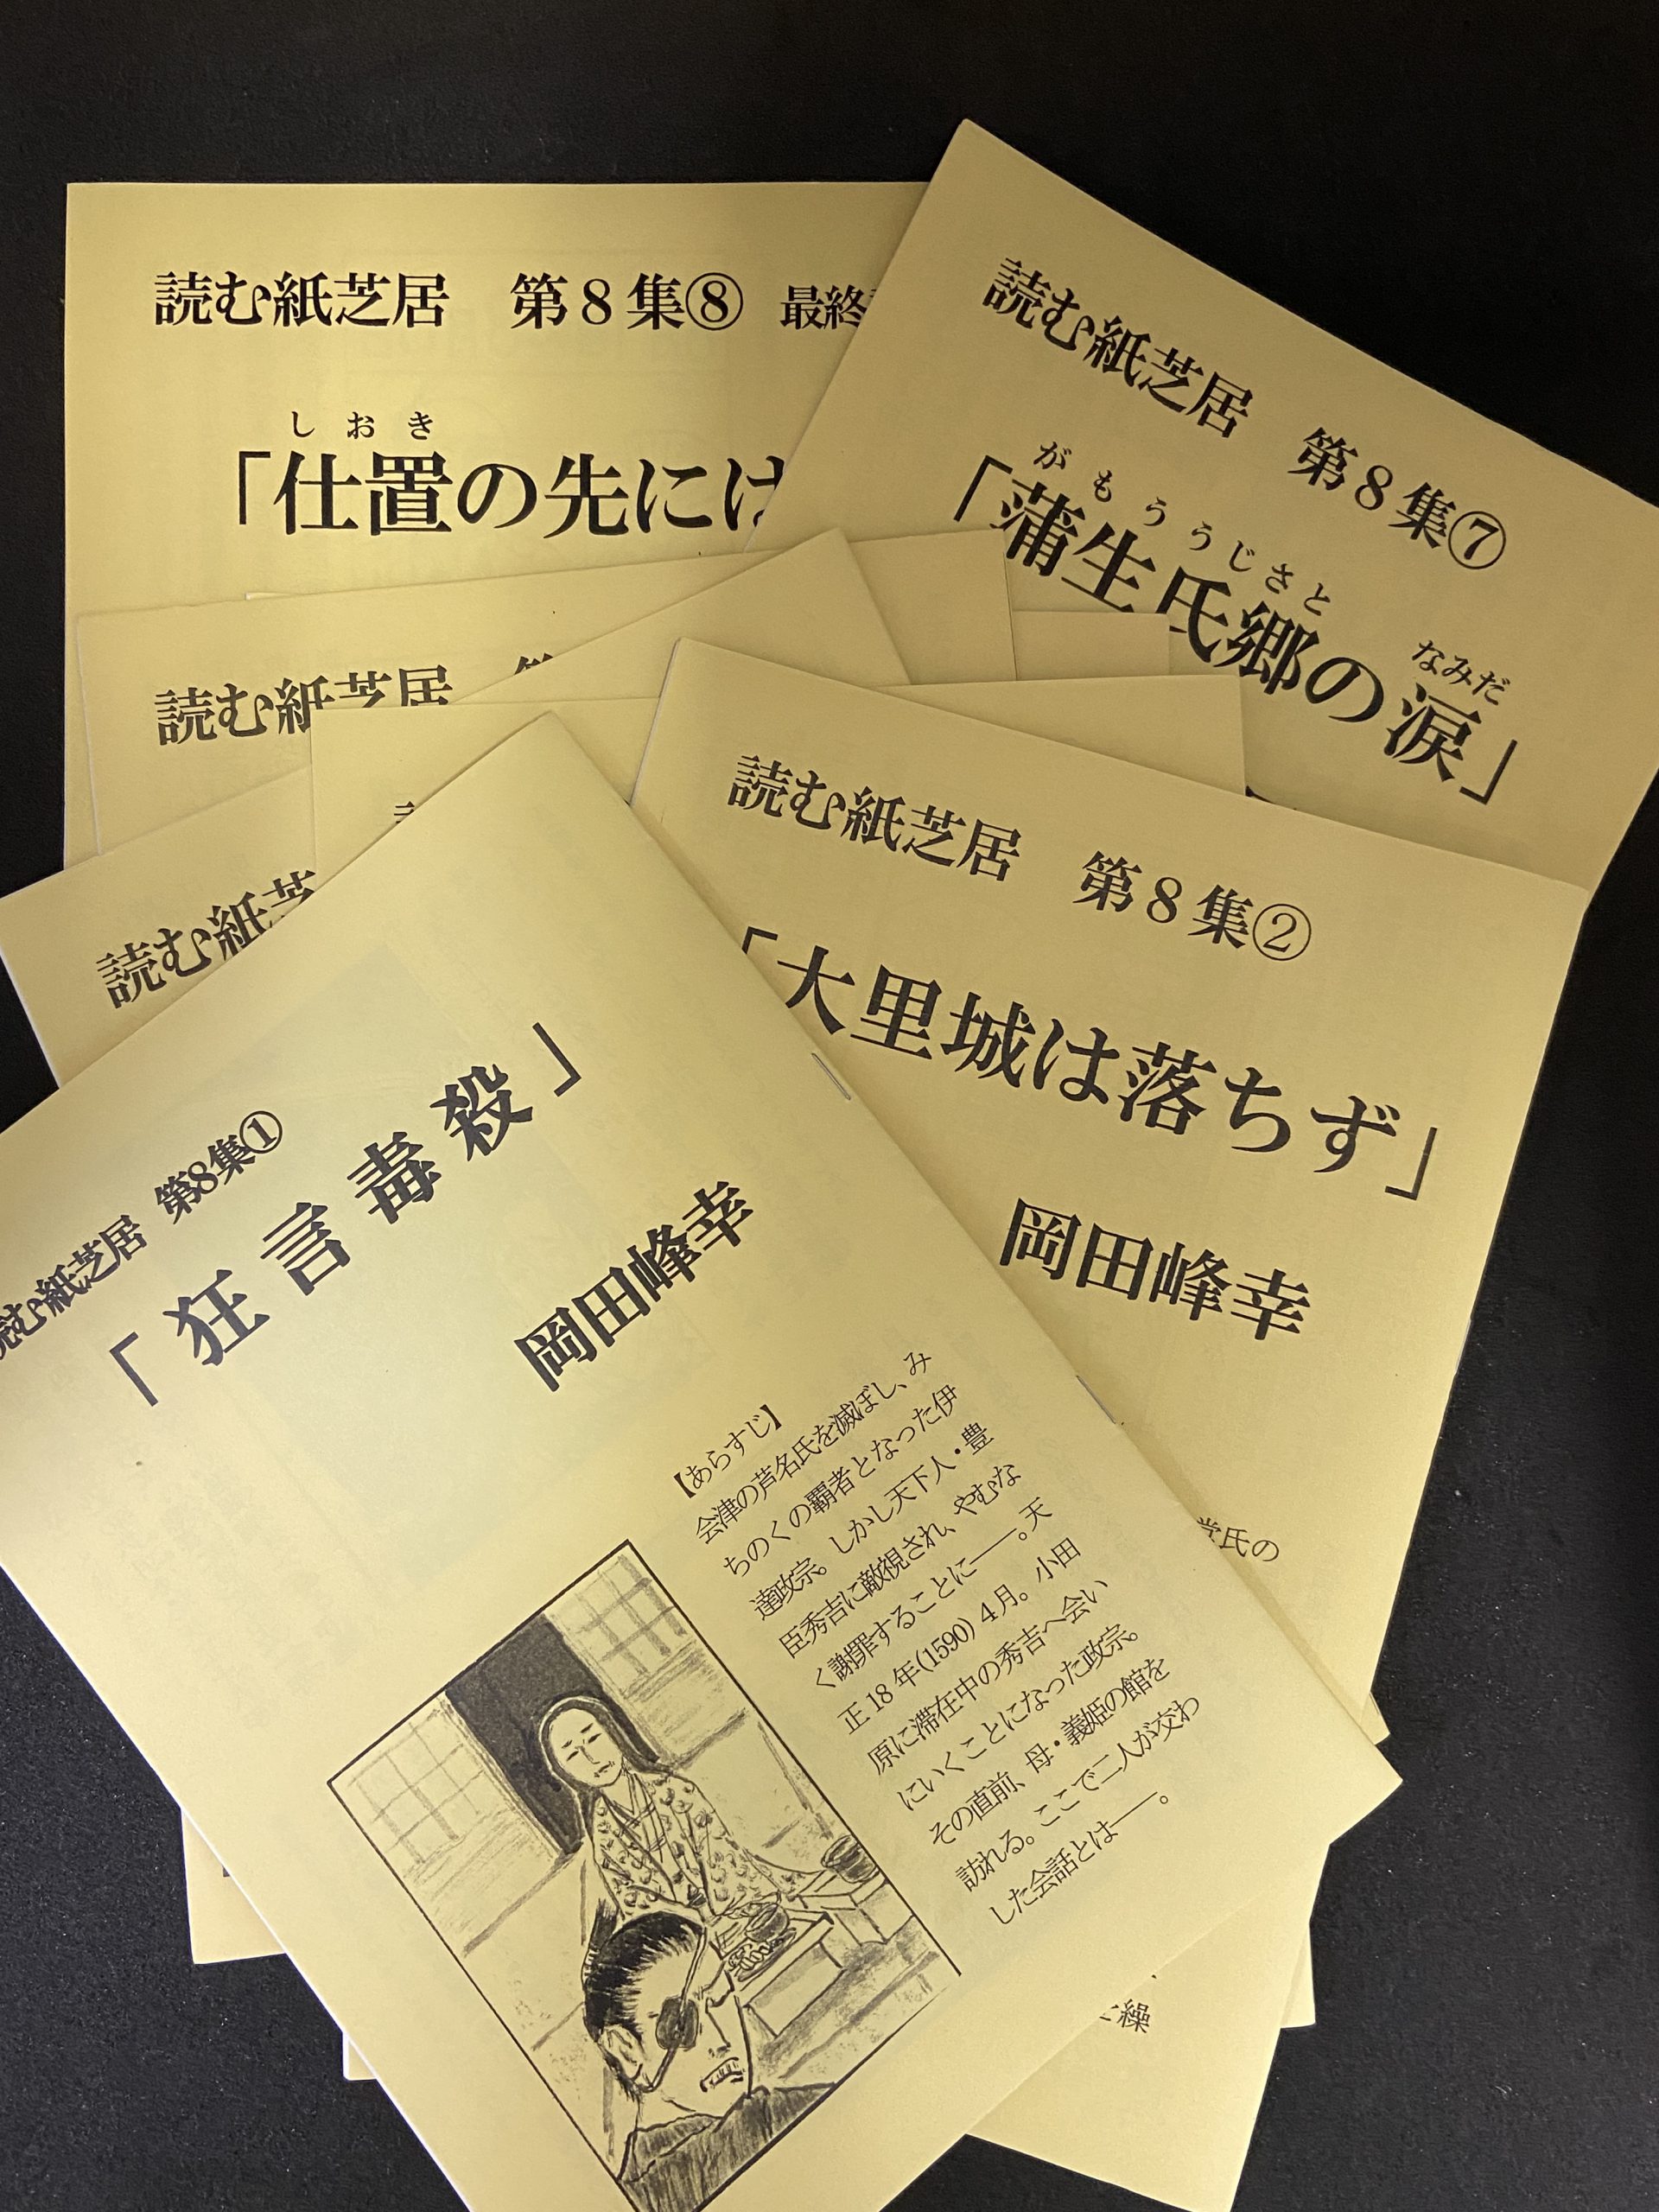 読む紙芝居　第８集⑧　最終
しおき
「仕置の先には
読む紙芝居　第８集⑦
がもううじさと　なみだ
「蒲生氏郷の涙」
読む紙芝居
読む紙芝
読む紙芝居　第８集②
「大里城は落ちず」
岡田峰幸
読む紙芝居　第8集①
「狂言毒殺」
岡田峰幸
【あらすじ】
会津の芦名氏を滅ぼし、み
ちのくの覇者となった伊
達政宗。しかし天下人・豊
臣秀吉に敵視され、やむな
く謝罪することに――。天
正18年(1590) 4月。小田
原に滞在中の秀吉へ会い
にいくことになった政宗。
その直前、母・義姫の館を
訪れる。ここで二人が交わ
した会話とは――。
氏の
繰